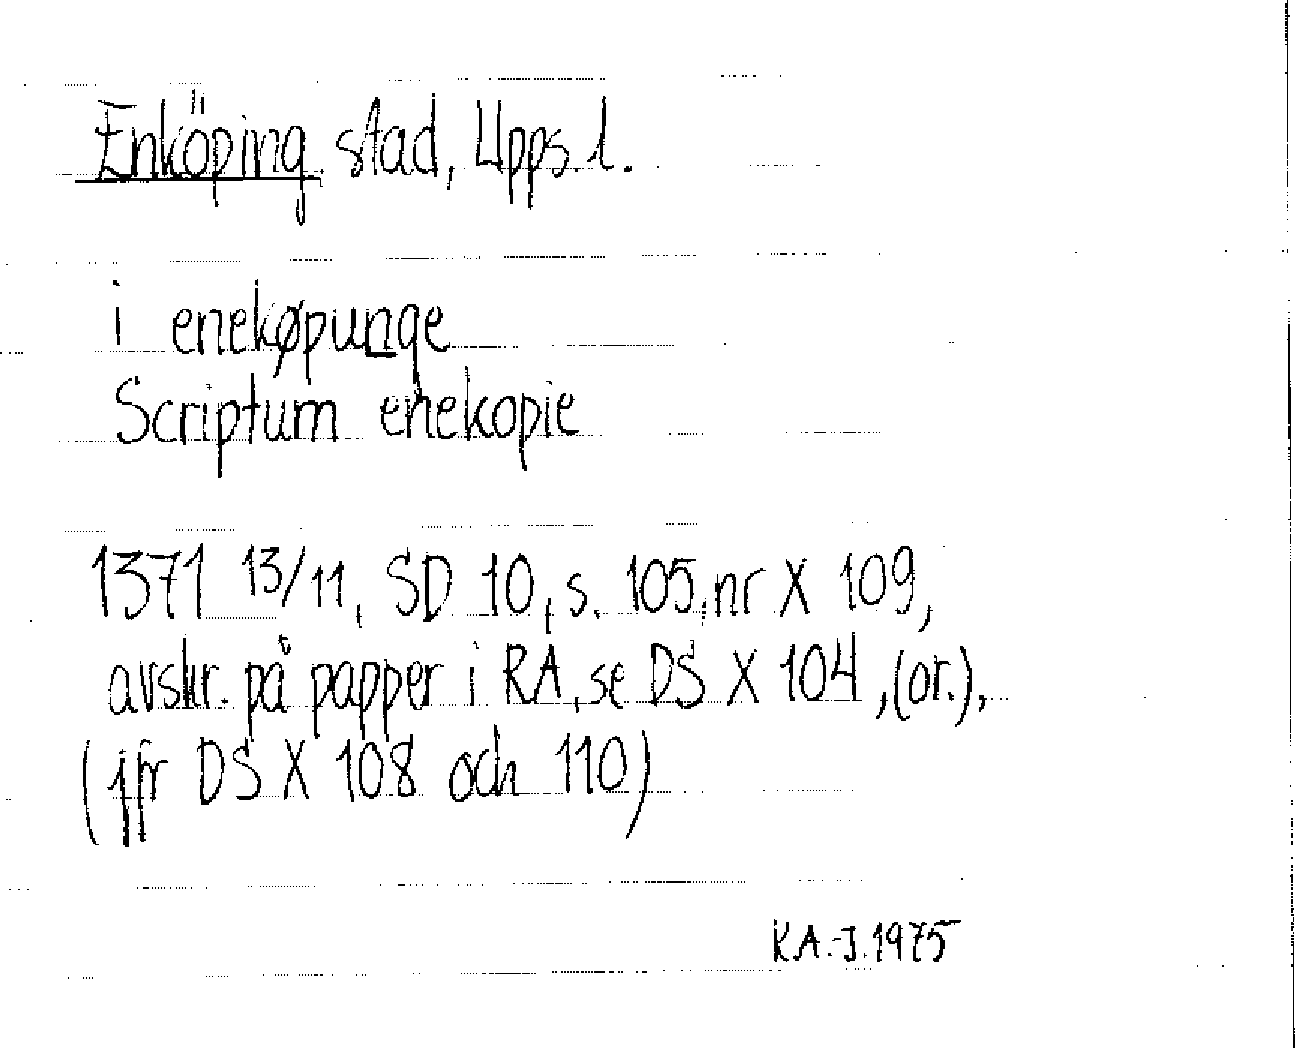 Enköping stad, Upps. l.
i enekøpunge
Scriptum enekopie
1371 13/11, SD 10, s. 105, nr X 109,
avskr. på papper i RA, se DS X 104, (or.),
(jfr DS X 108 och 110)
K.A.-J. 1975